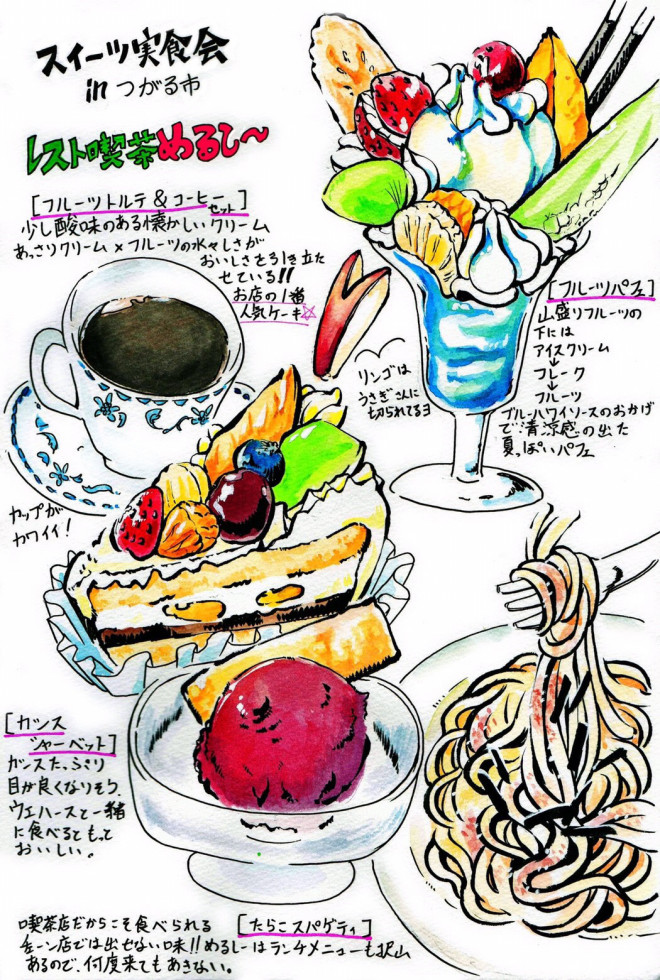 スイーツ実食会
in つがる市
レスト喫茶めるしー
[フルーツトルテ&コーヒーセット]
少し酸味のある懐かしいクリーム
あっさりクリーム×フルーツの水々しさが
おいしさを引き立た
せている!!
お店の1番
人気ケーキ☆
カップが
カワイイ!
リンゴは
うさぎさんに
切られてるヨ
[フルーツパフェ]
山盛りフルーツの
下には
アイスクリーム
↓
フレーク
↓
フルーツ
ブルーハワイソースのおかげ
で清涼感の出た
夏っぽいパフェ
[カシス
シャーベット]
カシスたっぷり
目が良くなりそう、
ウエハースと一緒
に食べるともって
おいしい。
[たらこスパゲティ]
喫茶店だからこそ食べられる
チェーン店では出せない味!!めるしーはランチメニューも沢山
あるので、何度来てもあきない。